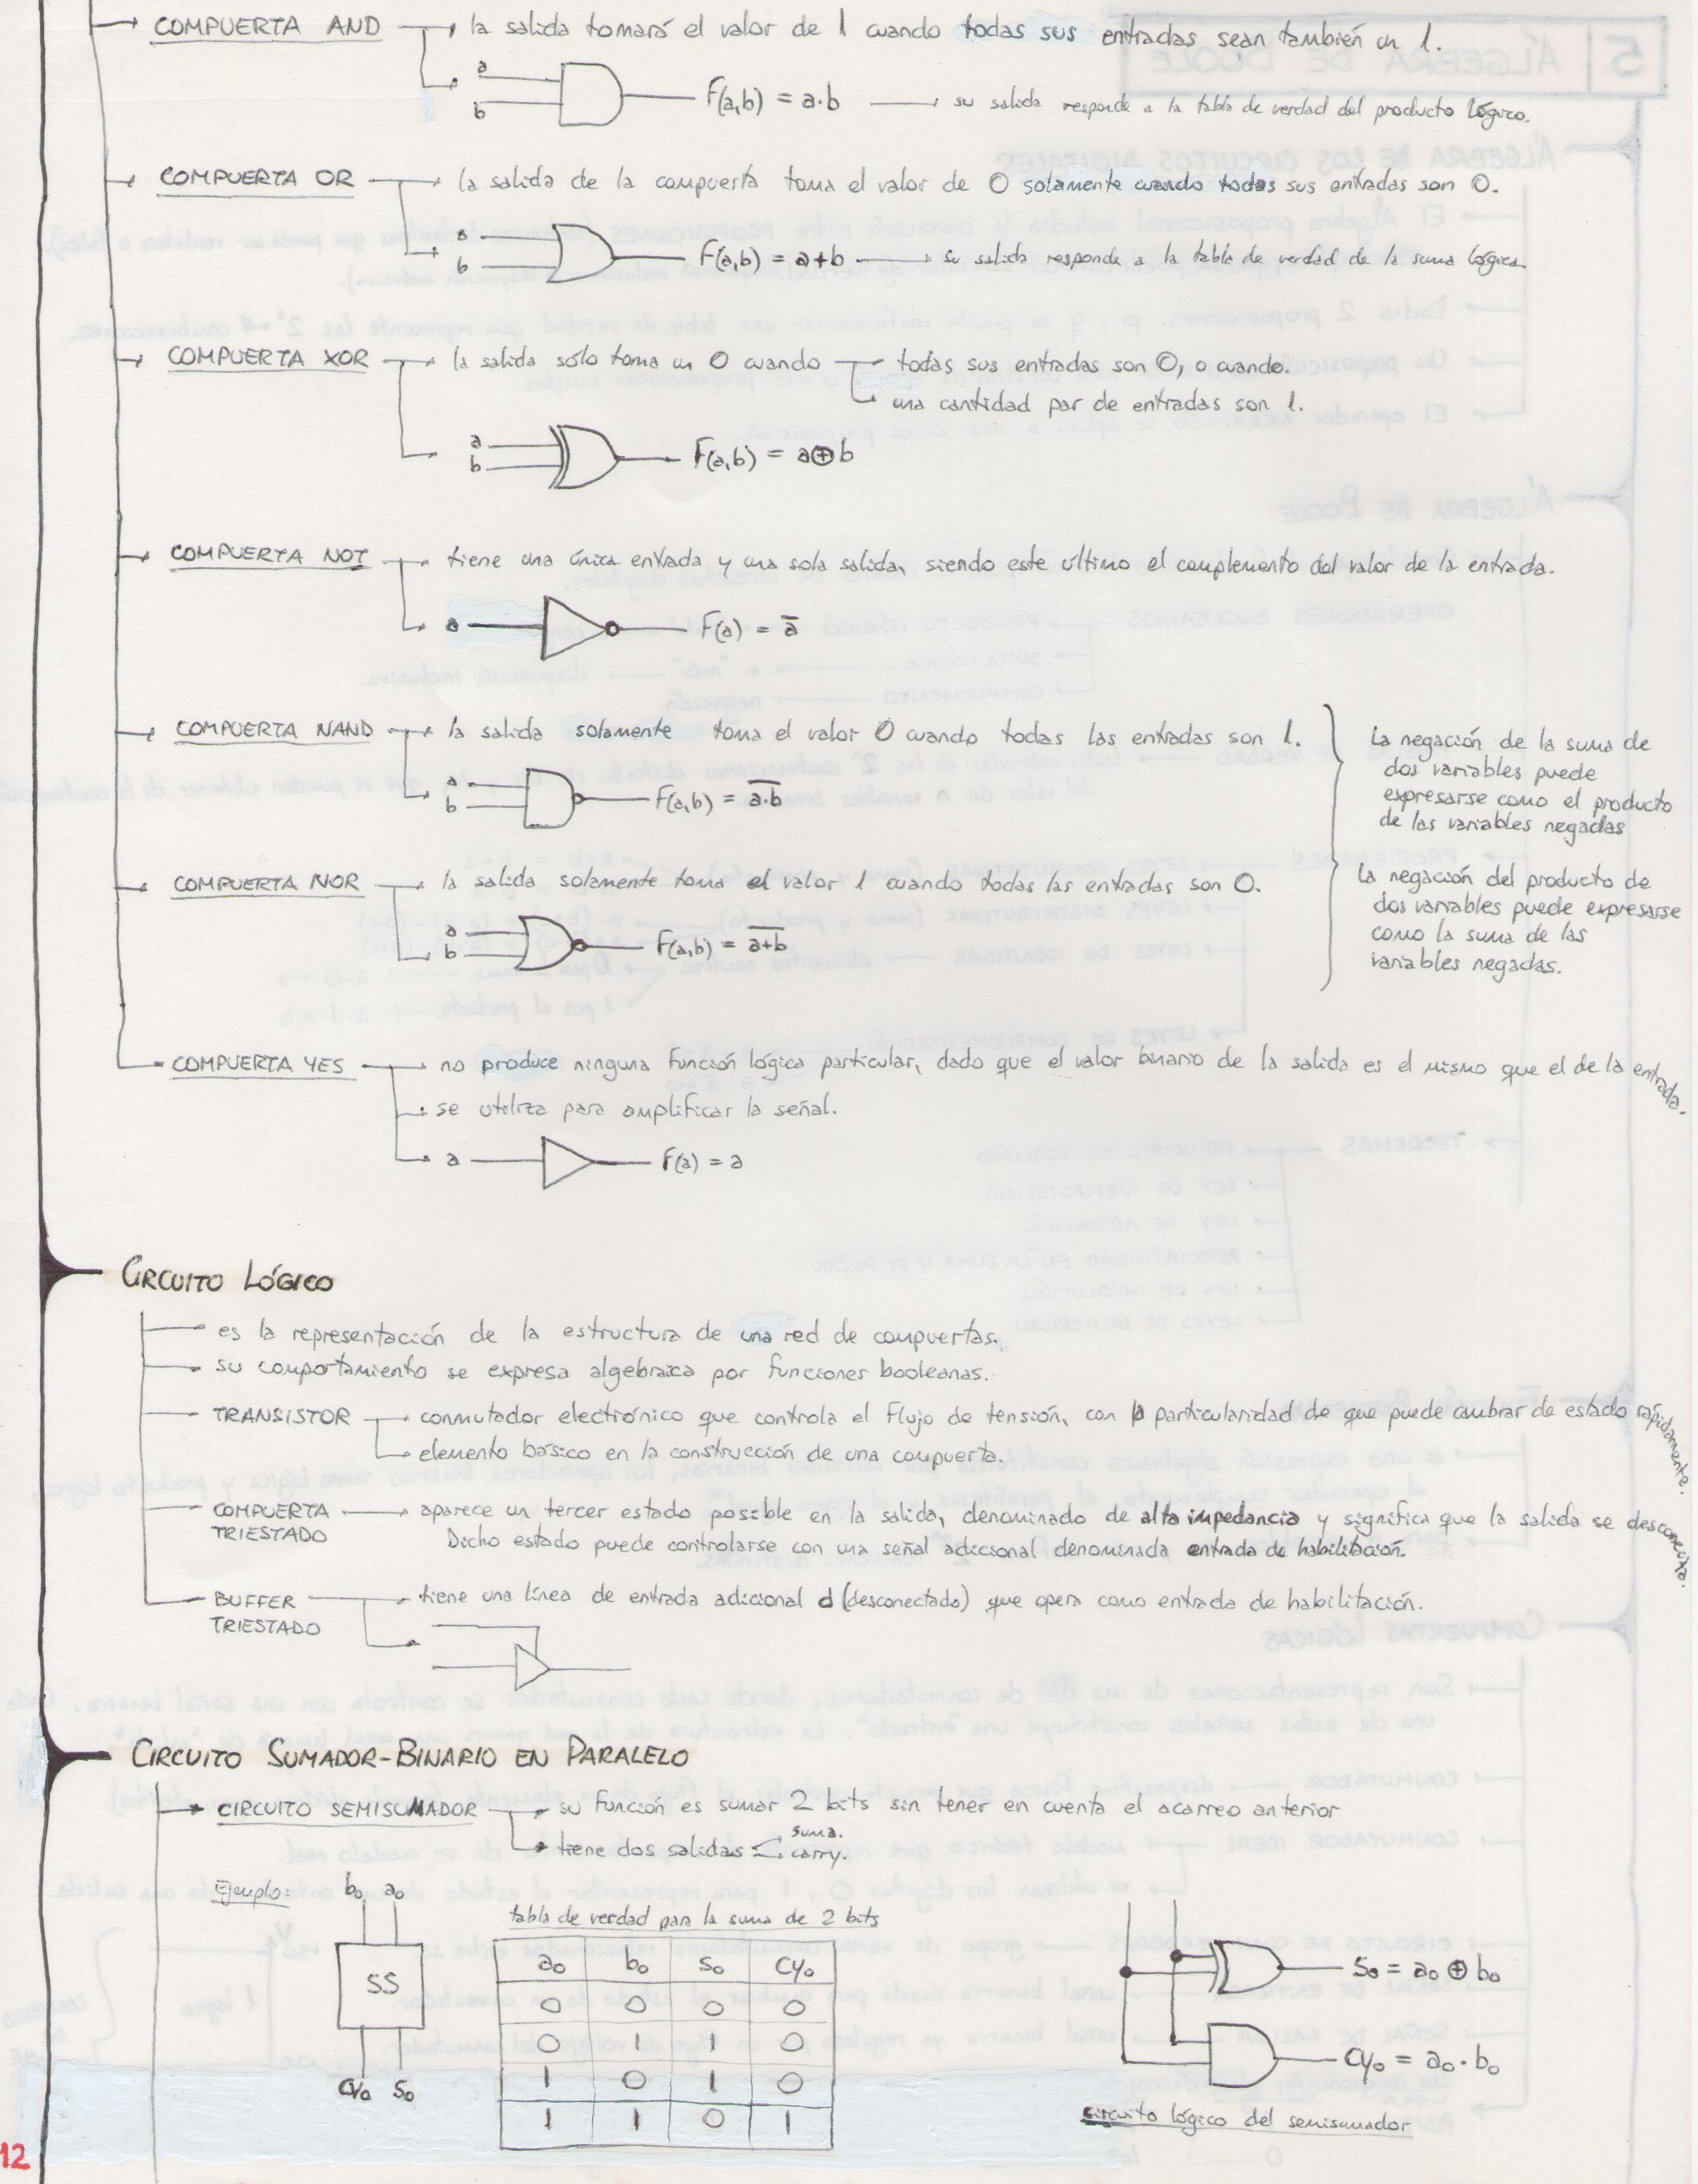 COMPUERTA AND → la salida tomará el valor de 1 cuando todas sus entradas sean también un 1.
a
b
F(a,b) = a·b → su salida responde a la tabla de verdad del producto lógico.
COMPUERTA OR → la salida de la compuerta toma el valor de 0 solamente cuando todas sus entradas son 0.
a
b
F(a,b) = a+b → su salida responde a la tabla de verdad de la suma lógica.
COMPUERTA XOR → la salida sólo toma un 0 cuando → todas sus entradas son 0, o cuando.
una cantidad par de entradas son 1.
a
b
F(a,b) = a⊕b
COMPUERTA NOT → tiene una única entrada y una sola salida, siendo este último el complemento del valor de la entrada.
a
F(a) = a̅
COMPUERTA NAND → la salida solamente toma el valor 0 cuando todas las entradas son 1.
a
b
F(a,b) = a̅·̅b̅
COMPUERTA NOR → la salida solamente toma el valor 1 cuando todas las entradas son 0.
a
b
F(a,b) = a̅+̅b̅
La negación de la suma de
dos variables puede
expresarse como el producto
de las variables negadas
La negación del producto de
dos variables puede expresarse
como la suma de las
variables negadas.
COMPUERTA YES → no produce ninguna función lógica particular, dado que el valor binario de la salida es el mismo que el de la entrada.
se utiliza para amplificar la señal.
a
F(a) = a
CIRCUITO LÓGICO
es la representación de la estructura de una red de compuertas.
su comportamiento se expresa algebraica por funciones booleanas.
TRANSISTOR → conmutador electrónico que controla el flujo de tensión, con la particularidad de que puede cambiar de estado rápidamente.
elemento básico en la construcción de una compuerta.
COMPUERTA TRIESTADO → aparece un tercer estado posible en la salida, denominado de alta impedancia y significa que la salida se desconecta.
Dicho estado puede controlarse con una señal adicional denominada entrada de habilitación.
BUFFER TRIESTADO → tiene una línea de entrada adicional d (desconectado) que opera como entrada de habilitación.
CIRCUITO SUMADOR-BINARIO EN PARALELO
CIRCUITO SEMISUMADOR → su función es sumar 2 bits sin tener en cuenta el acarreo anterior
tiene dos salidas
suma.
carry.
Ejemplo:
b₀ a₀
SS
cy₀ S₀
tabla de verdad para la suma de 2 bits
a₀ b₀ S₀ Cy₀
0 0 0 0
0 1 1 0
1 0 1 0
1 1 0 1
S₀ = a₀ ⊕ b₀
Cy₀ = a₀ · b₀
circuito lógico del semisumador
12